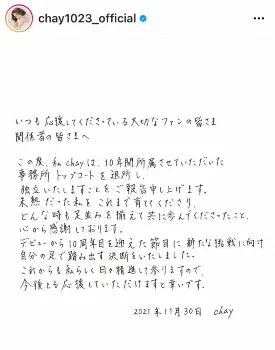 chay1023_official
いつも応援してくださっている大切なファンの皆さま
関係者の皆さまへ
この度、私chayは、10年間所属させていただいた
事務所トップコートを退所し、
独立いたしますことをご報告申し上げます。
未熟だった私をこれまで育ててくださり、
どんな時も足並みを揃えて共に歩んでくださったこと、
心から感謝しております。
デビューから10周年目を迎えた節目に新たな挑戦に向け
自分の足で踏み出す決断をいたしました。
これからも私らしく日々精進して参りますので、
今後とも応援していただけますと幸いです。
2021年11月30日 chay